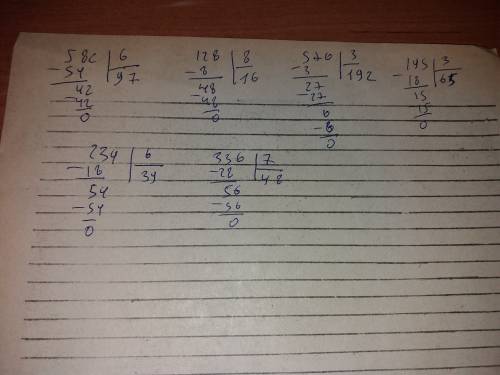 582 | 6
-54 | 97
42
-42
0
128 | 8
-8 | 16
48
-48
0
576 | 3
-3 | 192
27
27
6
-6
0
195 | 3
-18 | 65
15
15
0
234 | 6
-18 | 39
54
-54
0
336 | 7
-28 | 48
56
-56
0